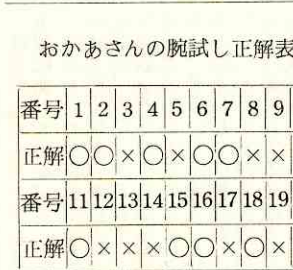 おかあさんの腕試し正解表
番号 1 2 3 4 5 6 7 8 9
正解 ○ ○ × ○ × ○ ○ × ×
番号 11 12 13 14 15 16 17 18 19
正解 ○ × × × ○ ○ × ○ ×